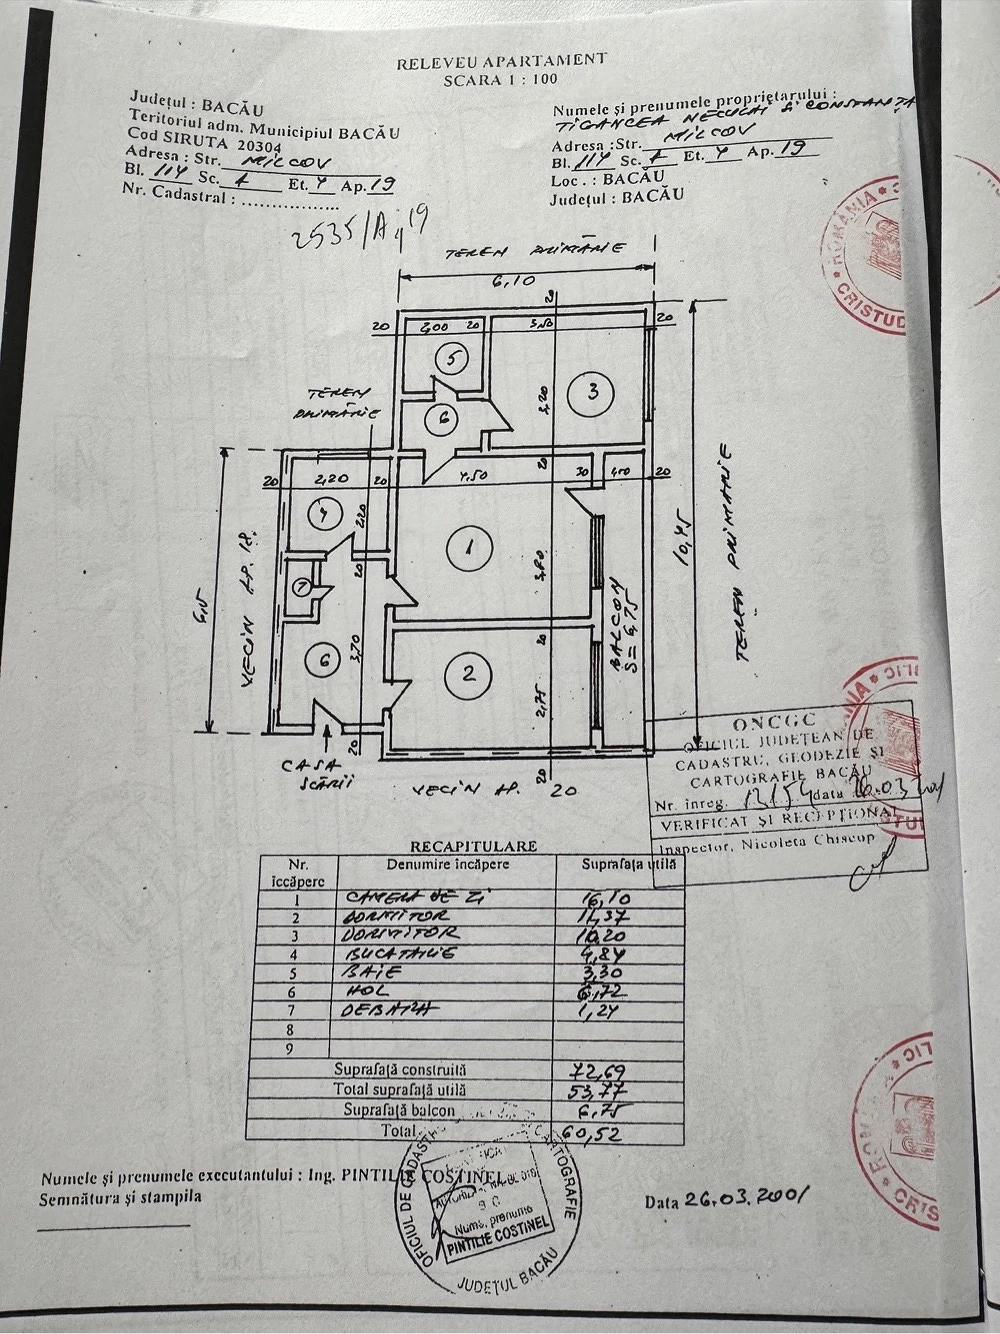 RELEVEU APARTAMENT
SCARA 1 : 100
Județul : BACĂU
Teritoriul adm. Municipiul BACĂU
Cod SIRUTA 20304
Adresa : Str. MILCOV
Bl. 114 Sc. A Et. 4 Ap. 19
Nr. Cadastral : ................
2535/A
19
Numele și prenumele proprietarului :
TIGANCEA NECULAI ȘI CONSTANȚA
Adresa :Str. MILCOV
Bl. 114 Sc. A Et. 4 Ap. 19
Loc. : BACĂU
Județul : BACĂU
TEREN PRIMĂRIE
6,10
20
20 2,00 20 3,50 20
5
3
3,20
6
TEREN
PRIMĂRIE
20
20 2,20 20 4,50 30 1,00 20
4
2,20
1
3,80
20
7
6,5
VECIN AP. 18.
10,45
TEREN PRIMĂRIE
BALCON
S = 6,75
6
3,70
20
2
2,75
20
20
CASA
SCĂRII
VECIN AP. 20
ONCGC
OFICIUL JUDEȚEAN DE
CADASTRU, GEODEZIE ȘI
CARTOGRAFIE BACĂU
Nr. înreg. 13154 data 26.03 2001
VERIFICAT ȘI RECEPȚIONAT
Inspector, Nicoleta Chiscop
RECAPITULARE
Nr. îccăpere Denumire încăpere Suprafața utilă
1 CAMERA DE ZI 16,10
2 DORMITOR 11,37
3 DORMITOR 10,20
4 BUCATARIE 4,84
5 BAIE 3,30
6 HOL 6,72
7 DEBARA 1,24
8
9
Suprafață construită 72,69
Total suprafață utilă 53,77
Suprafață balcon 6,75
Total 60,52
Numele și prenumele executantului : Ing. PINTILIE COSTINEL
Semnătura și stampila
Data 26.03.2001
OFICIUL DE CADASTRU CARTOGRAFIE
Nume, prenume
PINTILIE COSTINEL
JUDEȚUL BACĂU
ROMÂNIA
CRISTUD
CRISTU
ROMÂNIA
CRIS